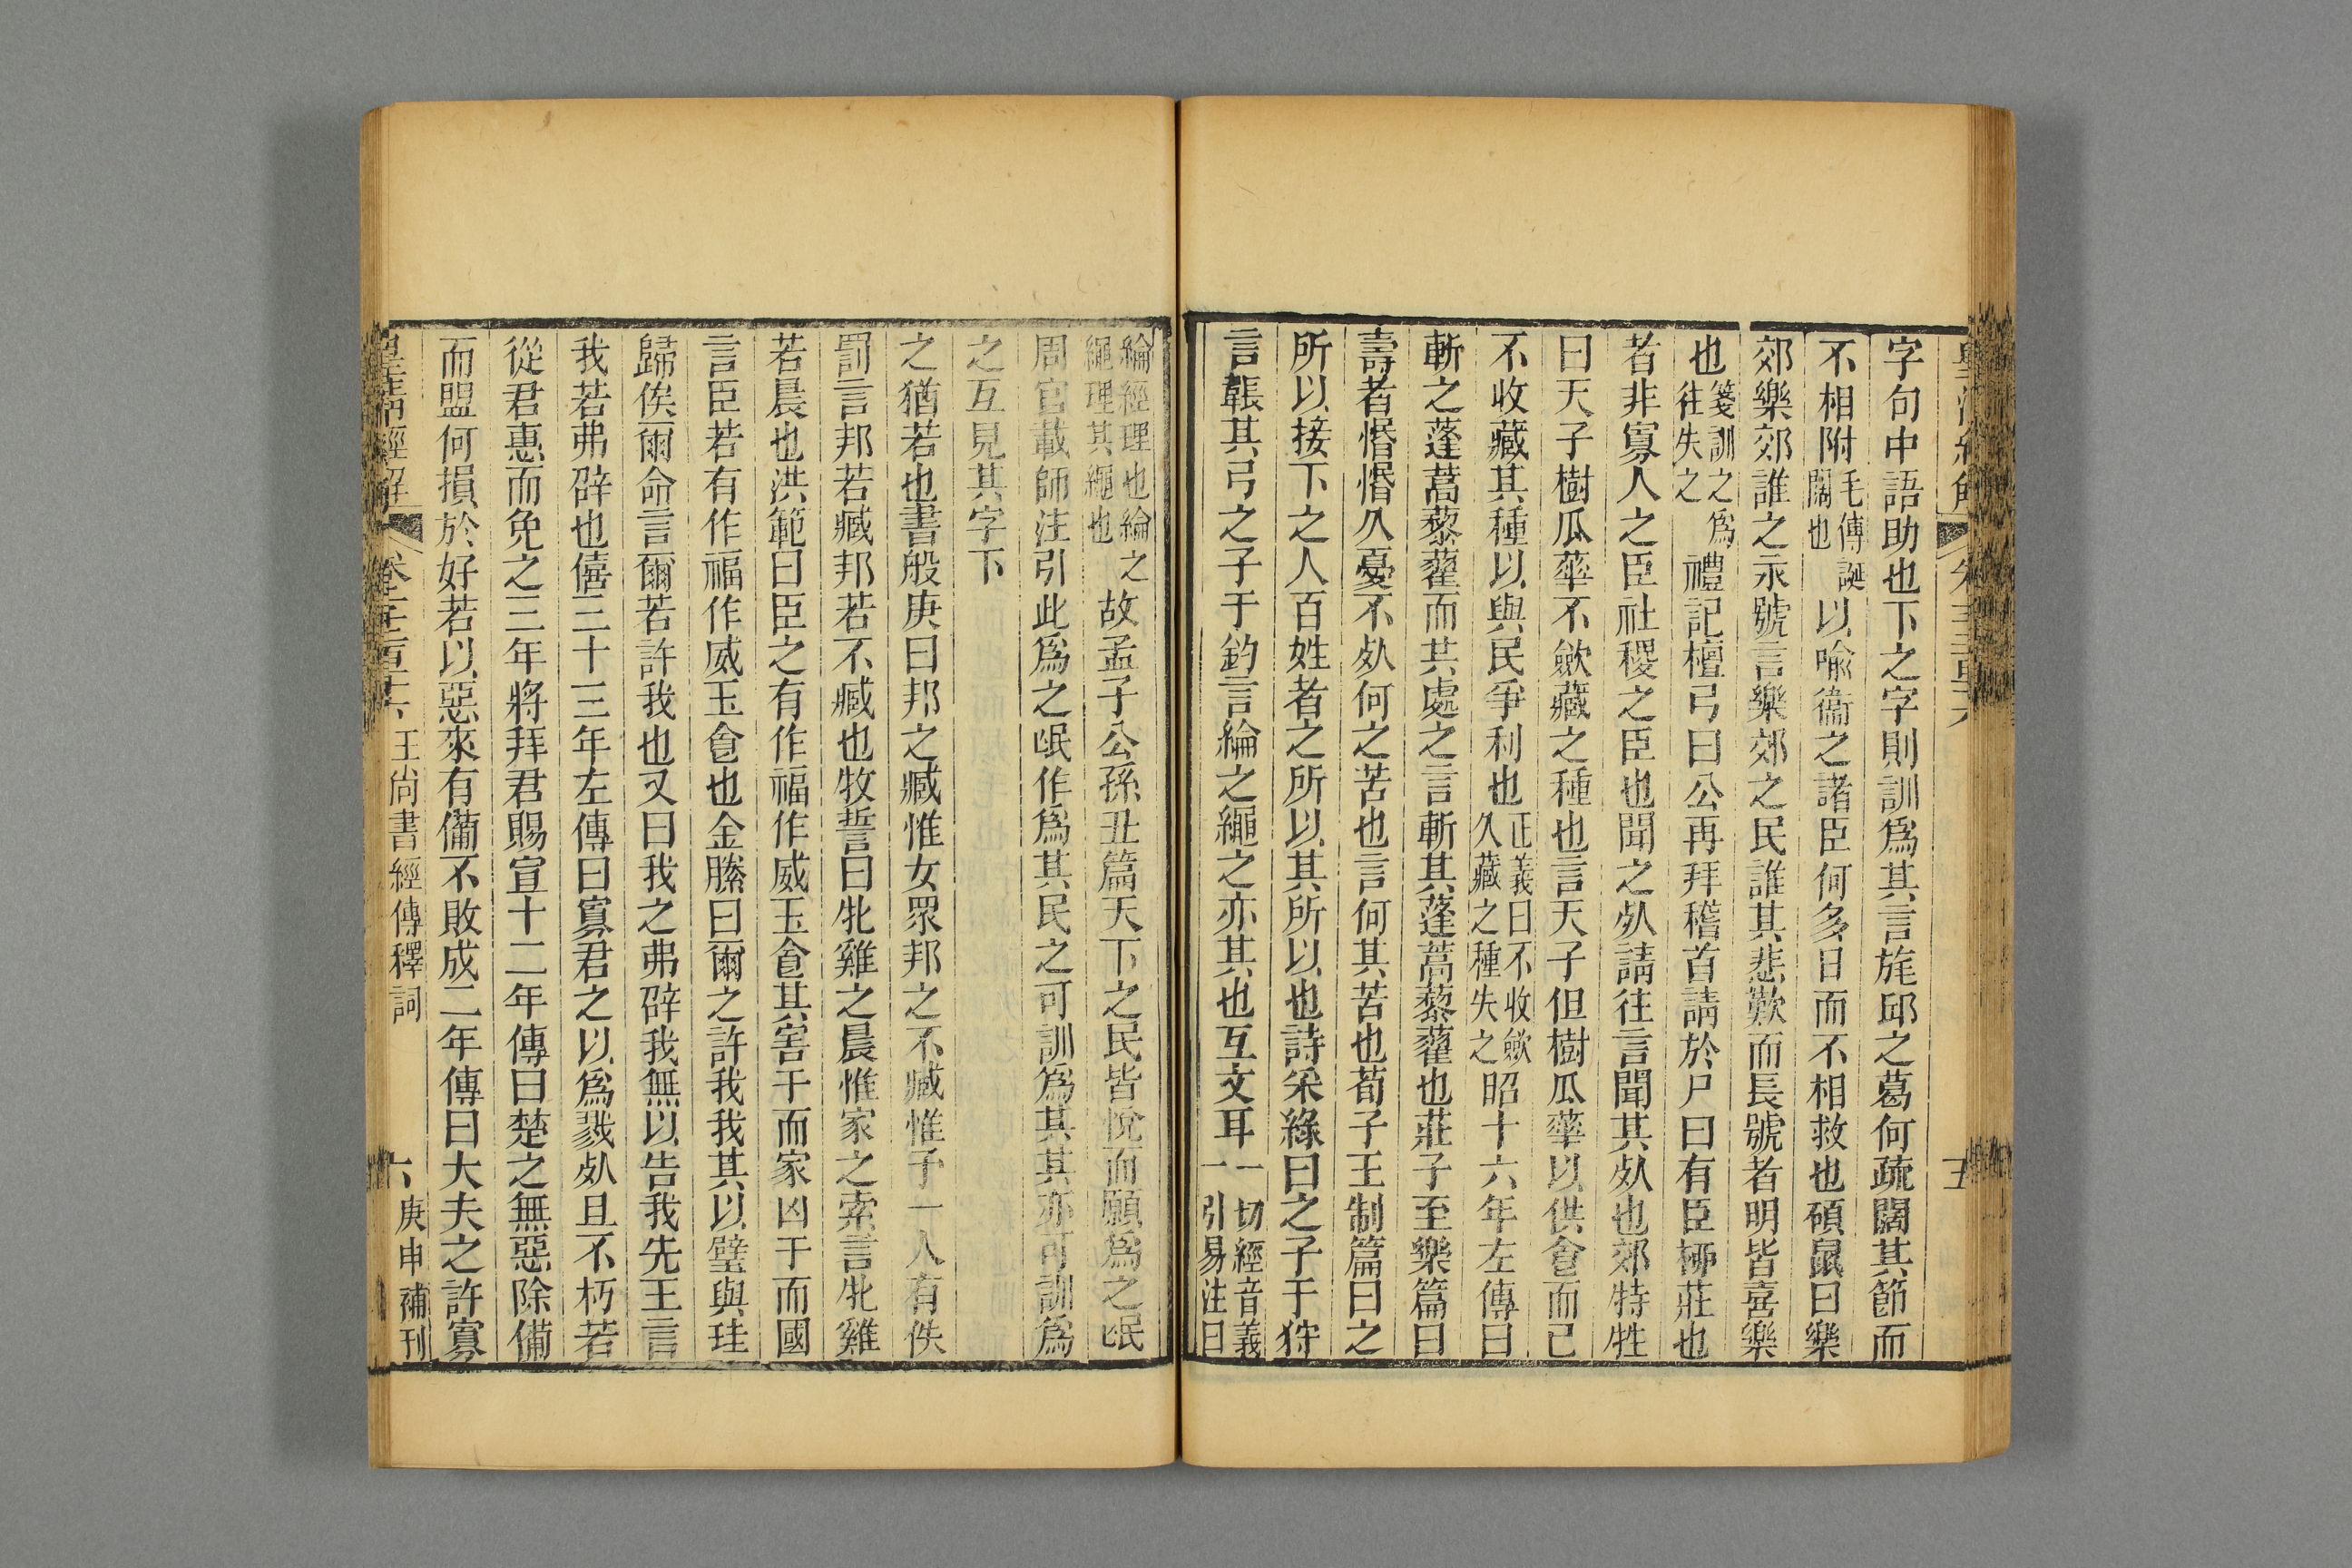 字句中語助也下之字則訓爲其言旄邱之葛何疏闊其節而
不相附毛傳誕闊也以喻衞之諸臣何多日而不相救也碩鼠曰樂
郊樂郊誰之永號言樂郊之民誰其悲歎而長號者明皆喜樂
也箋訓之爲往失之禮記檀弓曰公再拜稽首請於尸曰有臣柳莊也
者非寡人之臣社稷之臣也聞之死請往言聞其死也郊特牲
曰天子樹瓜華不斂藏之種也言天子但樹瓜華以供食而已
不收藏其種以與民爭利也正義曰不收斂久藏之種失之昭十六年左傳曰
斬之蓬蒿藜藋而共處之言斬其蓬蒿藜藋也莊子至樂篇曰
壽者惛惛久憂不死何之苦也言何其苦也荀子王制篇曰之
所以接下之人百姓者之所以其所以也詩采綠曰之子于狩
言韔其弓之子于釣言綸之繩之亦其也互文耳一切經音義一引易注曰
綸經理也綸之繩理其繩也故孟子公孫丑篇天下之民皆悅而願爲之氓
周官載師注引此爲之氓作爲其民之可訓爲其其亦可訓爲
之互見其字下
之猶若也書般庚曰邦之臧惟女眾邦之不臧惟予一人有佚
罰言邦若臧邦若不臧也牧誓曰牝雞之晨惟家之索言牝雞
若晨也洪範曰臣之有作福作威玉食其害于而家凶于而國
言臣若有作福作威玉食也金縢曰爾之許我我其以璧與珪
歸俟爾命言爾若許我也又曰我之弗辟我無以告我先王言
我若弗辟也僖三十三年左傳曰寡君之以爲戮死且不朽若
從君惠而免之三年將拜君賜宣十二年傳曰楚之無惡除備
而盟何損於好若以惡來有備不敗成二年傳曰大夫之許寡
皇淸經解 王尚書經傳釋詞 六 庚申補刊